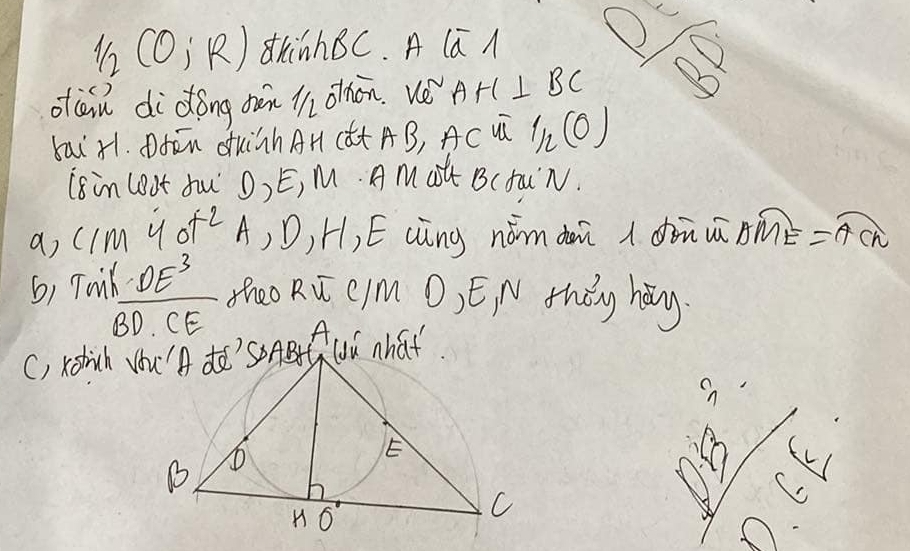 1/2 (O; R) đkính BC. A là 1
điểm di động trên 1/2 đtròn. Vẽ AH ⊥ BC
tại H. Đtròn đkính AH cắt AB, AC và 1/2 (O)
lần lượt tại D, E, M. AM cắt BC tại N.
a, C/M 4 đ² A, D, H, E cùng nằm trên 1 đtròn và
b, Tính DE³/BD.CE theo R và C/M D, E, N thẳng hàng.
C, xđịnh vtrí A để S ABH lớn nhất.
A
D
E
B
H O
C
D
BD